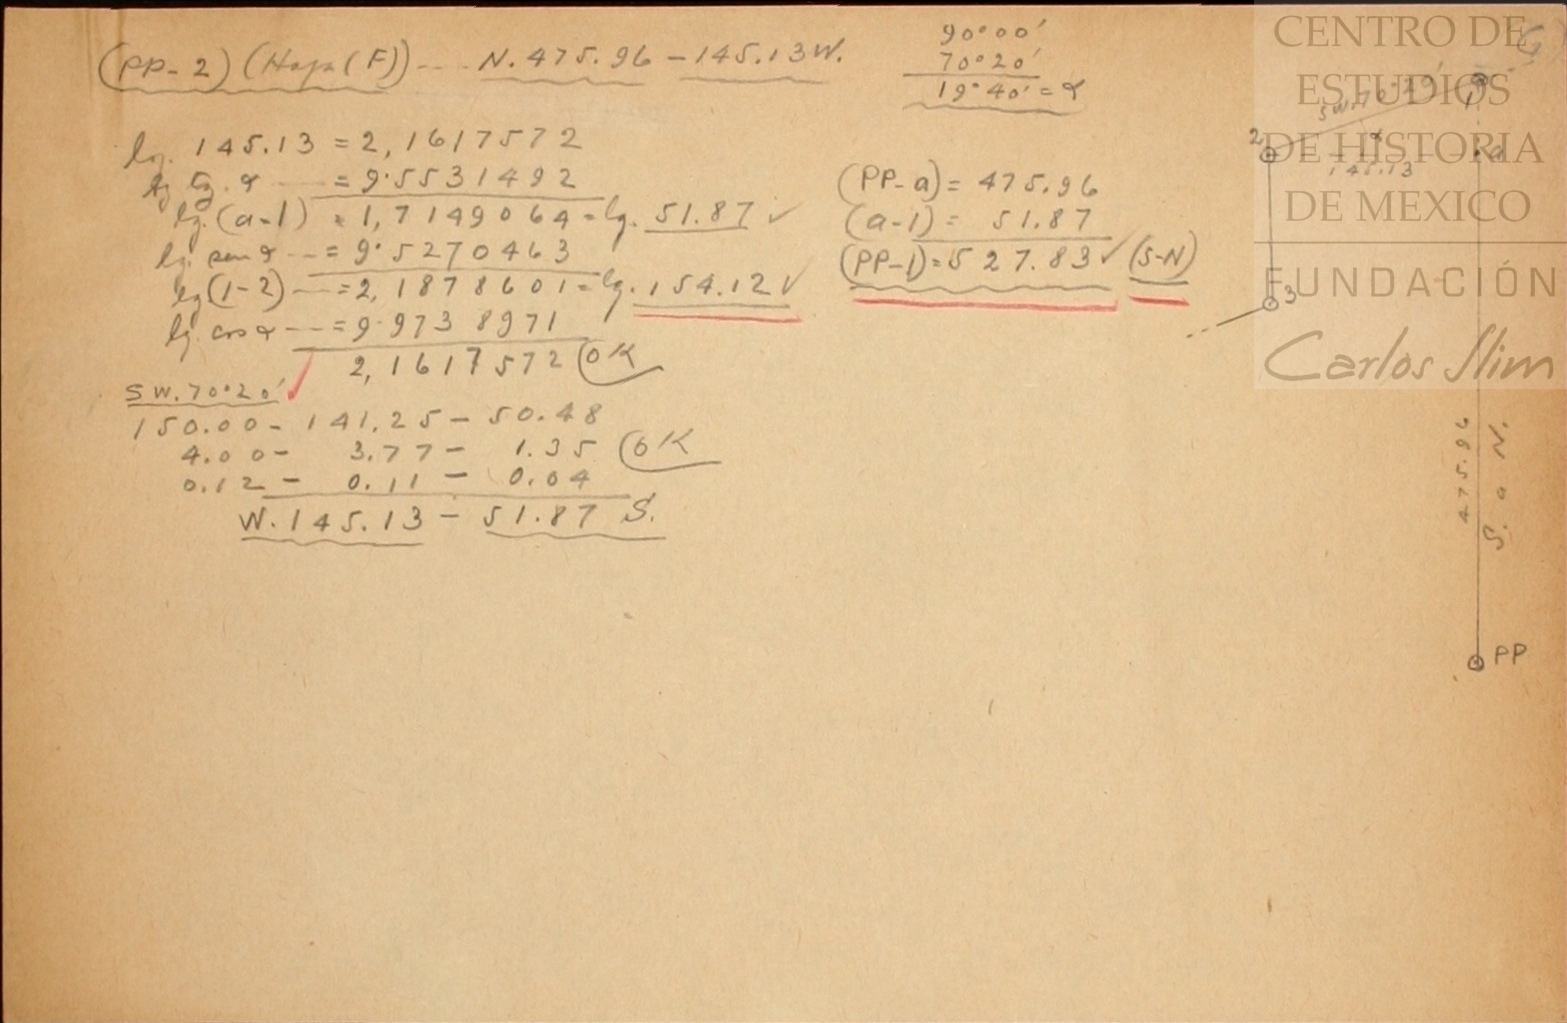 (PP-2) (Hoja (F)) --- N. 475.96 - 145.13 W.
90°00'
70°20'
19°40' = α
lg. 145.13 = 2,1617572
lg tg. α --- = 9.5531492
lg. (a-1) = 1,7149064 = lg. 51.87 ✓
lg. sen α --- = 9.5270463
lg (1-2) --- = 2,1878601 = lg. 154.12 ✓
lg. cos α --- = 9.9738971
2,1617572 OK
SW. 70°20' ✓
150.00 - 141.25 - 50.48
4.00 - 3.77 - 1.35 OK
0.12 - 0.11 - 0.04
W. 145.13 - 51.87 S.
(PP-a) = 475.96
(a-1) = 51.87
(PP-1) = 527.83 ✓ (S-N)
SW. 70°20'
1
2
α
a
145.13
3
475.96
S. a N.
PP
CENTRO DE
ESTUDIOS
DE HISTORIA
DE MEXICO
FUNDACIÓN
Carlos Slim